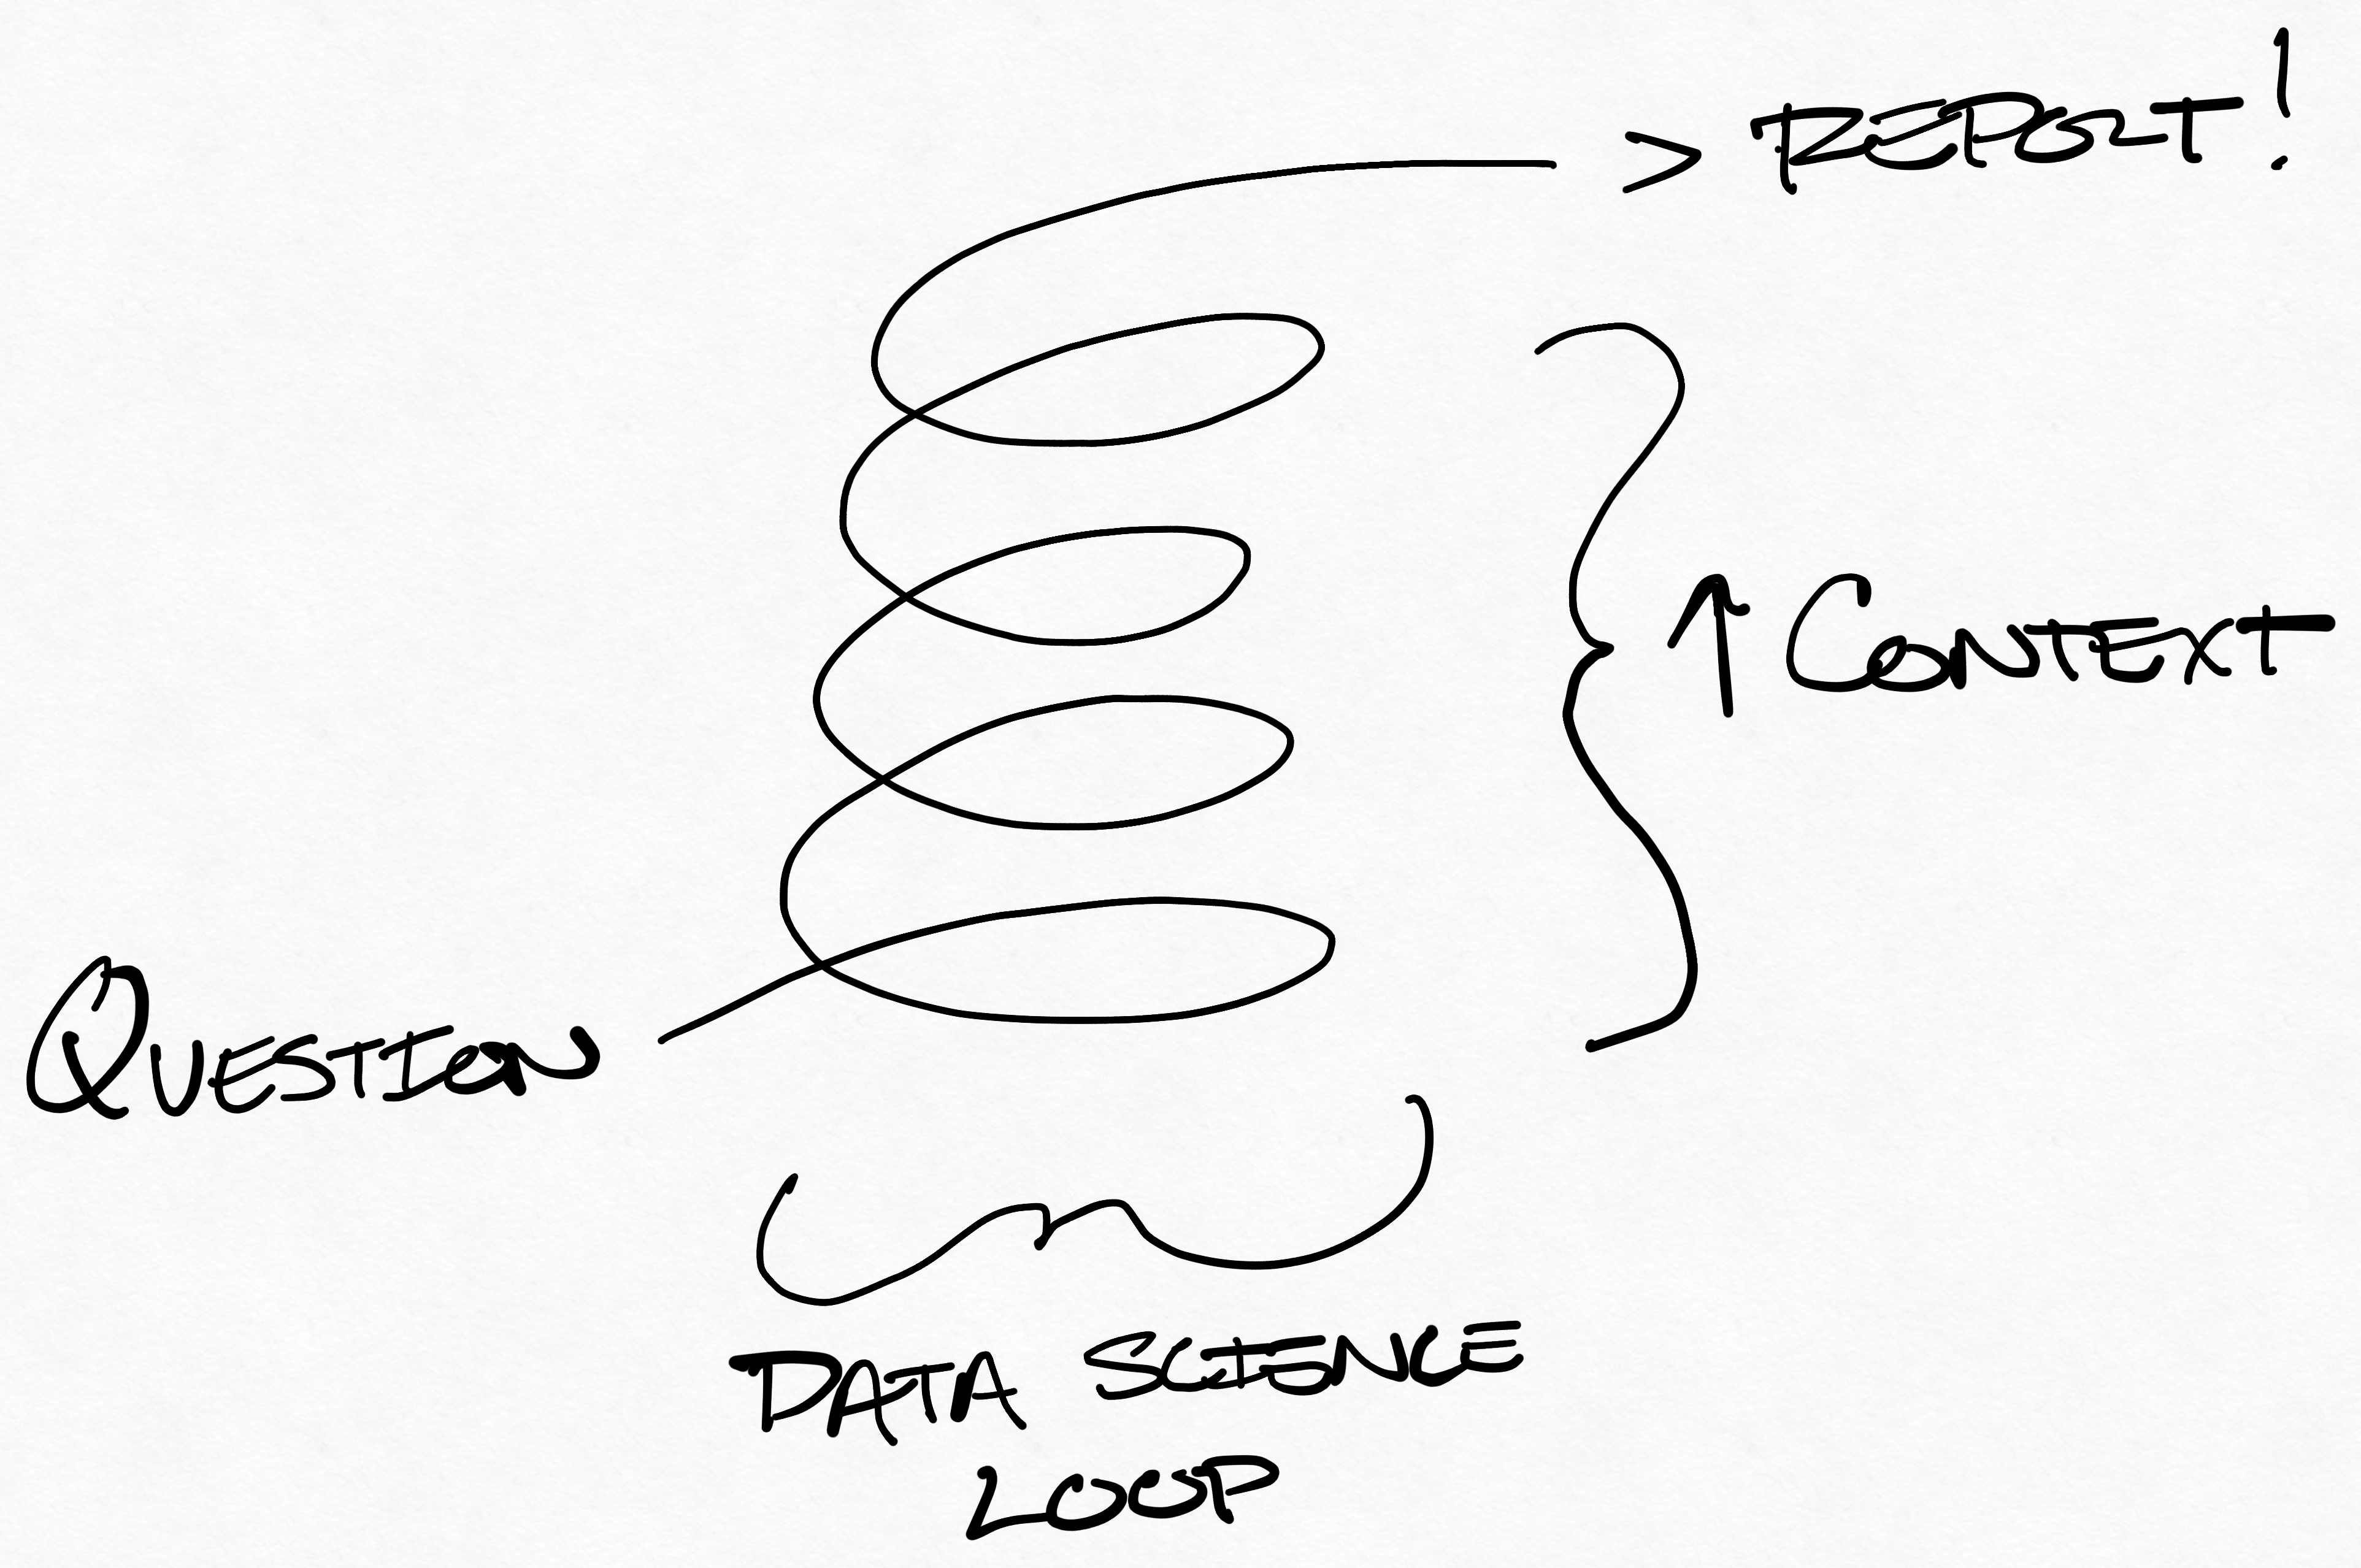 > REPORT!
↑ CONTEXT
QUESTION
DATA SCIENCE
LOOP